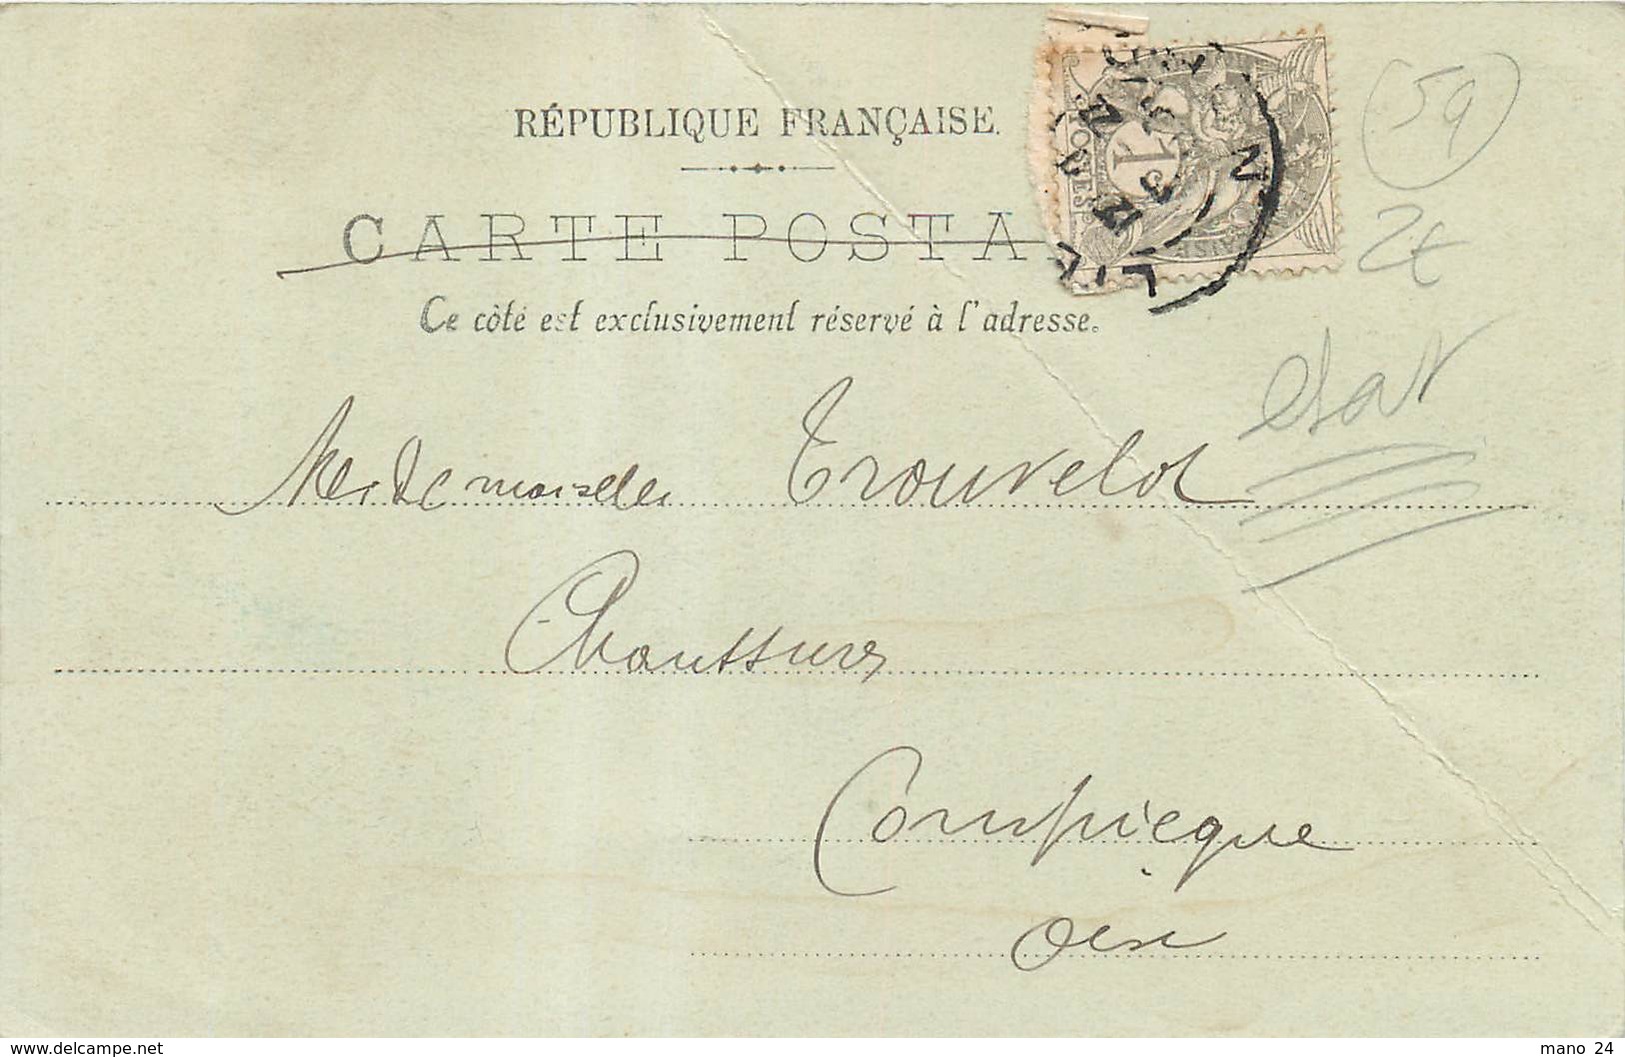 RÉPUBLIQUE FRANÇAISE.
CARTE POSTA
Ce côté est exclusivement réservé à l'adresse.
1
POSTES
(59)
2€
Mesdemoiselles Trouvelot
Chaussures
Compiegne
Oise
www.delcampe.net
mano 24